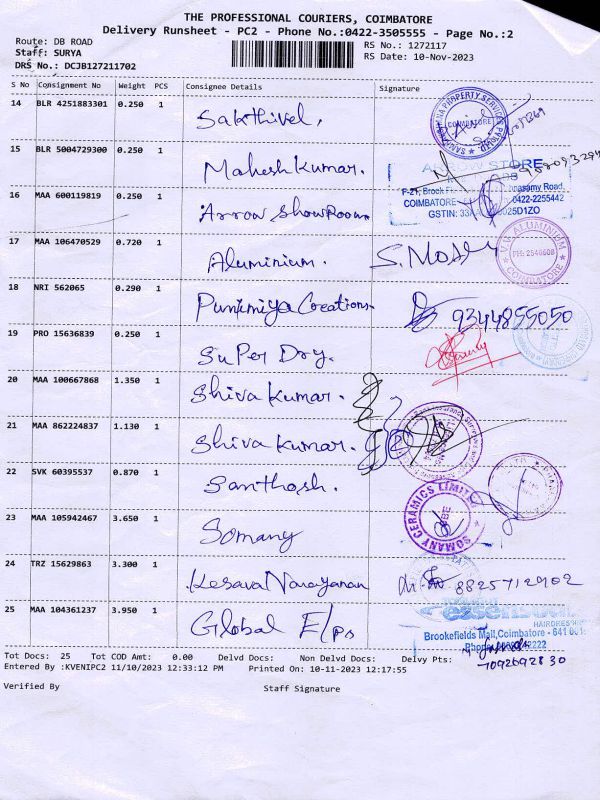 THE PROFESSIONAL COURIERS, COIMBATORE
Delivery Runsheet - PC2 - Phone No.:0422-3505555 - Page No.:2
Route: DB ROAD
RS No.: 1272117
Staff: SURYA
RS Date: 10-Nov-2023
DRS No.: DCJB127211702
S No Consignment No Weight PCS Consignee Details Signature
14 BLR 4251883301 0.250 1 Sakthivel. COIMBATORE
15 BLR 5004729300 0.250 1 Mahesh Kumar.
ARROW STORE
COIMBATORE 0422-2255442
16 MAA 600119819 0.250 1 Arrow ShowRoom
17 MAA 106470529 0.720 1 Aluminium. S. Mosey V.V. ALUMINIUM PH: 2540608 COIMBATORE
18 NRI 562065 0.290 1 Punimiya Creations. 9344855050
19 PRO 15636839 0.250 1 SuPer Dry.
20 MAA 100667868 1.350 1 Shiva Kumar.
21 MAA 862224837 1.130 1 Shiva Kumar.
22 SVK 60395537 0.870 1 Santhosh.
23 MAA 105942467 3.650 1 Somany SOMANY CERAMICS LIMITED
24 TRZ 15629863 3.300 1 Kesava Narayanan 8825712902
25 MAA 104361237 3.950 1 Global E/ps
HAIRDRESSING
Brookefields Mall, Coimbatore - 641 001
7092692830
Tot Docs: 25 Tot COD Amt: 0.00 Delvd Docs: Non Delvd Docs: Delvy Pts:
Entered By :KVENIPC2 11/10/2023 12:33:12 PM Printed On: 10-11-2023 12:17:55
Verified By Staff Signature